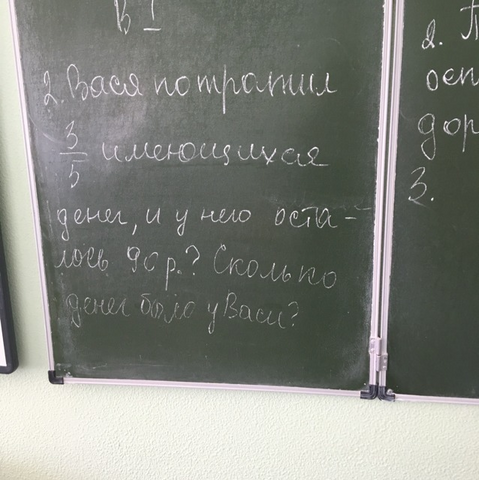 В I
2. Вася потратил
3/5 имеющихся
денег, и у него оста-
лось 90р.? Сколько
денег было у Васи?
2. П
осп
дор
3.